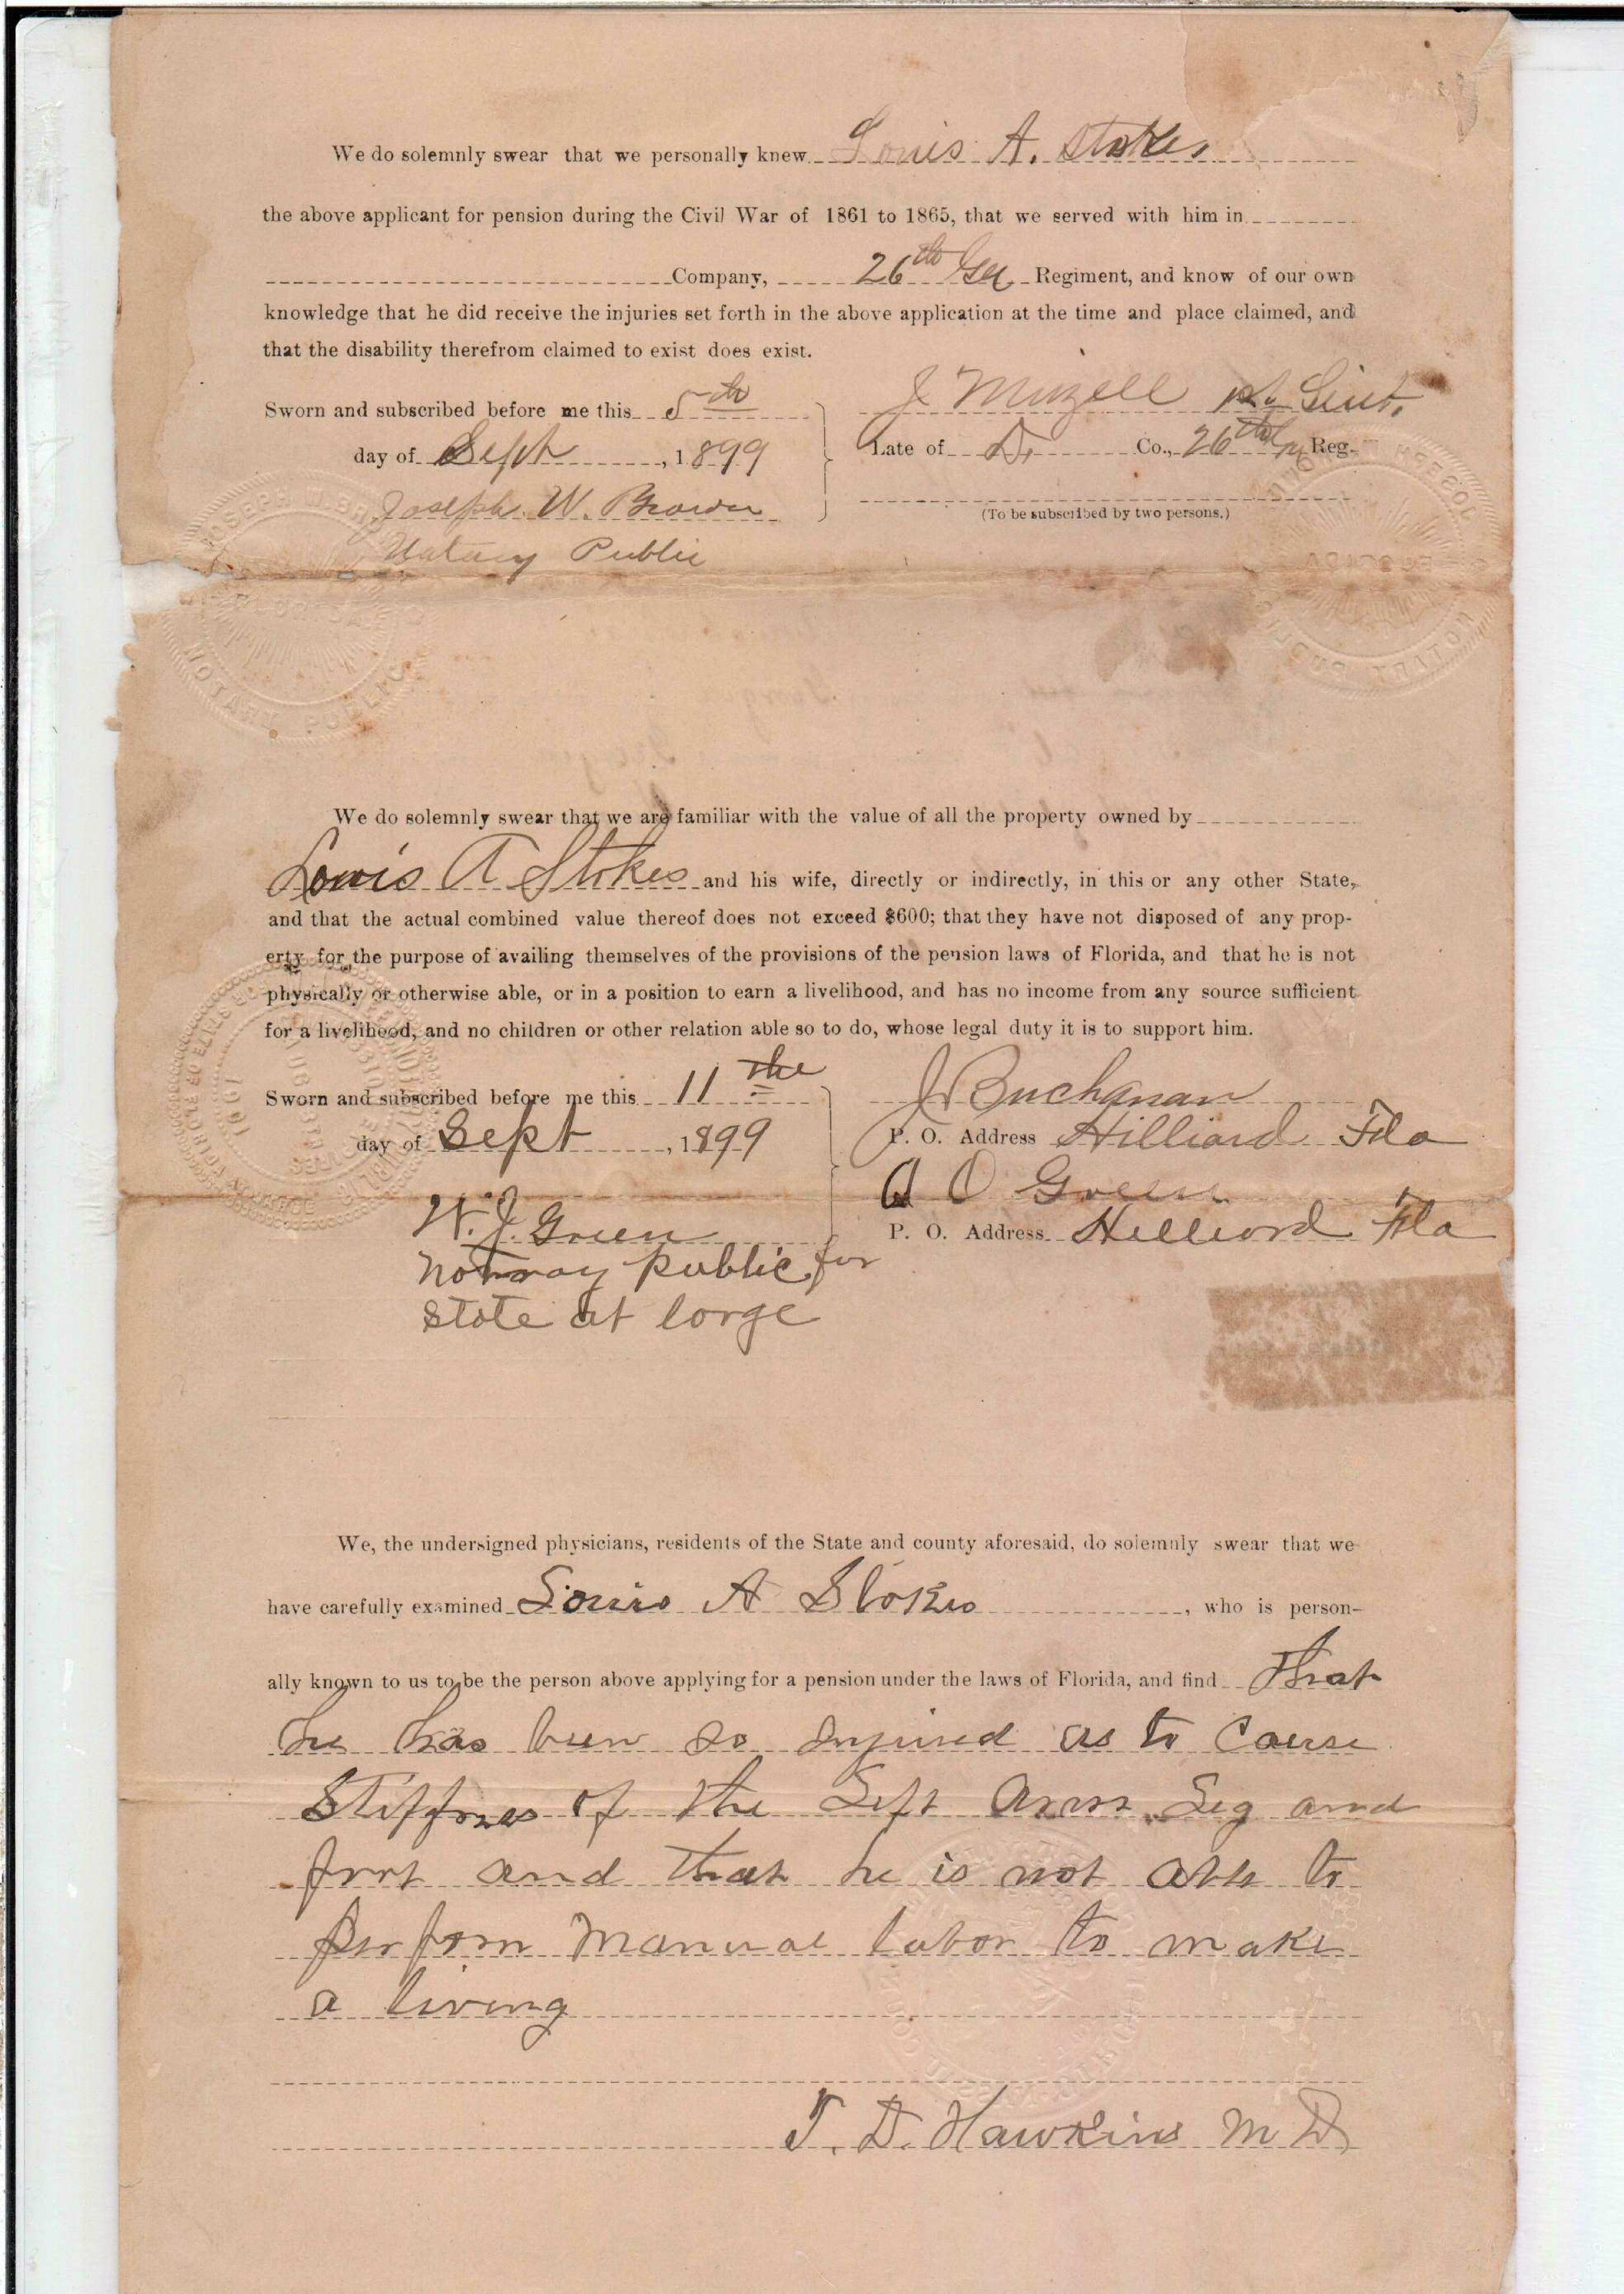 We do solemnly swear that we personally knew Louis A. Stokes
the above applicant for pension during the Civil War of 1861 to 1865, that we served with him in
Company, 26th Ga Regiment, and know of our own
knowledge that he did receive the injuries set forth in the above application at the time and place claimed, and
that the disability therefrom claimed to exist does exist.
Sworn and subscribed before me this 5th
day of Sept, 1899
Joseph W. Brown
Notary Public
J Mizell 1st Lieut.
Late of D. Co., 26th Ga Reg.
(To be subscribed by two persons.)
NOTARY PUBLIC
We do solemnly swear that we are familiar with the value of all the property owned by
Louis A Stokes and his wife, directly or indirectly, in this or any other State,
and that the actual combined value thereof does not exceed $600; that they have not disposed of any prop-
erty for the purpose of availing themselves of the provisions of the pension laws of Florida, and that he is not
physically or otherwise able, or in a position to earn a livelihood, and has no income from any source sufficient
for a livelihood, and no children or other relation able so to do, whose legal duty it is to support him.
Sworn and subscribed before me this 11the
day of Sept, 1899
W. J. Green
Notray public for
state at large
J Buchanan
P. O. Address Hilliard Fla
O Green
P. O. Address Hilliard Fla
We, the undersigned physicians, residents of the State and county aforesaid, do solemnly swear that we
have carefully examined Louis A Stokes, who is person-
ally known to us to be the person above applying for a pension under the laws of Florida, and find That
he has been so Injured as to Cause
Stiffness of the Left Arm Leg and
foot and that he is not able to
perform Manual labor to make
a living
T. D. Hawkins M D,